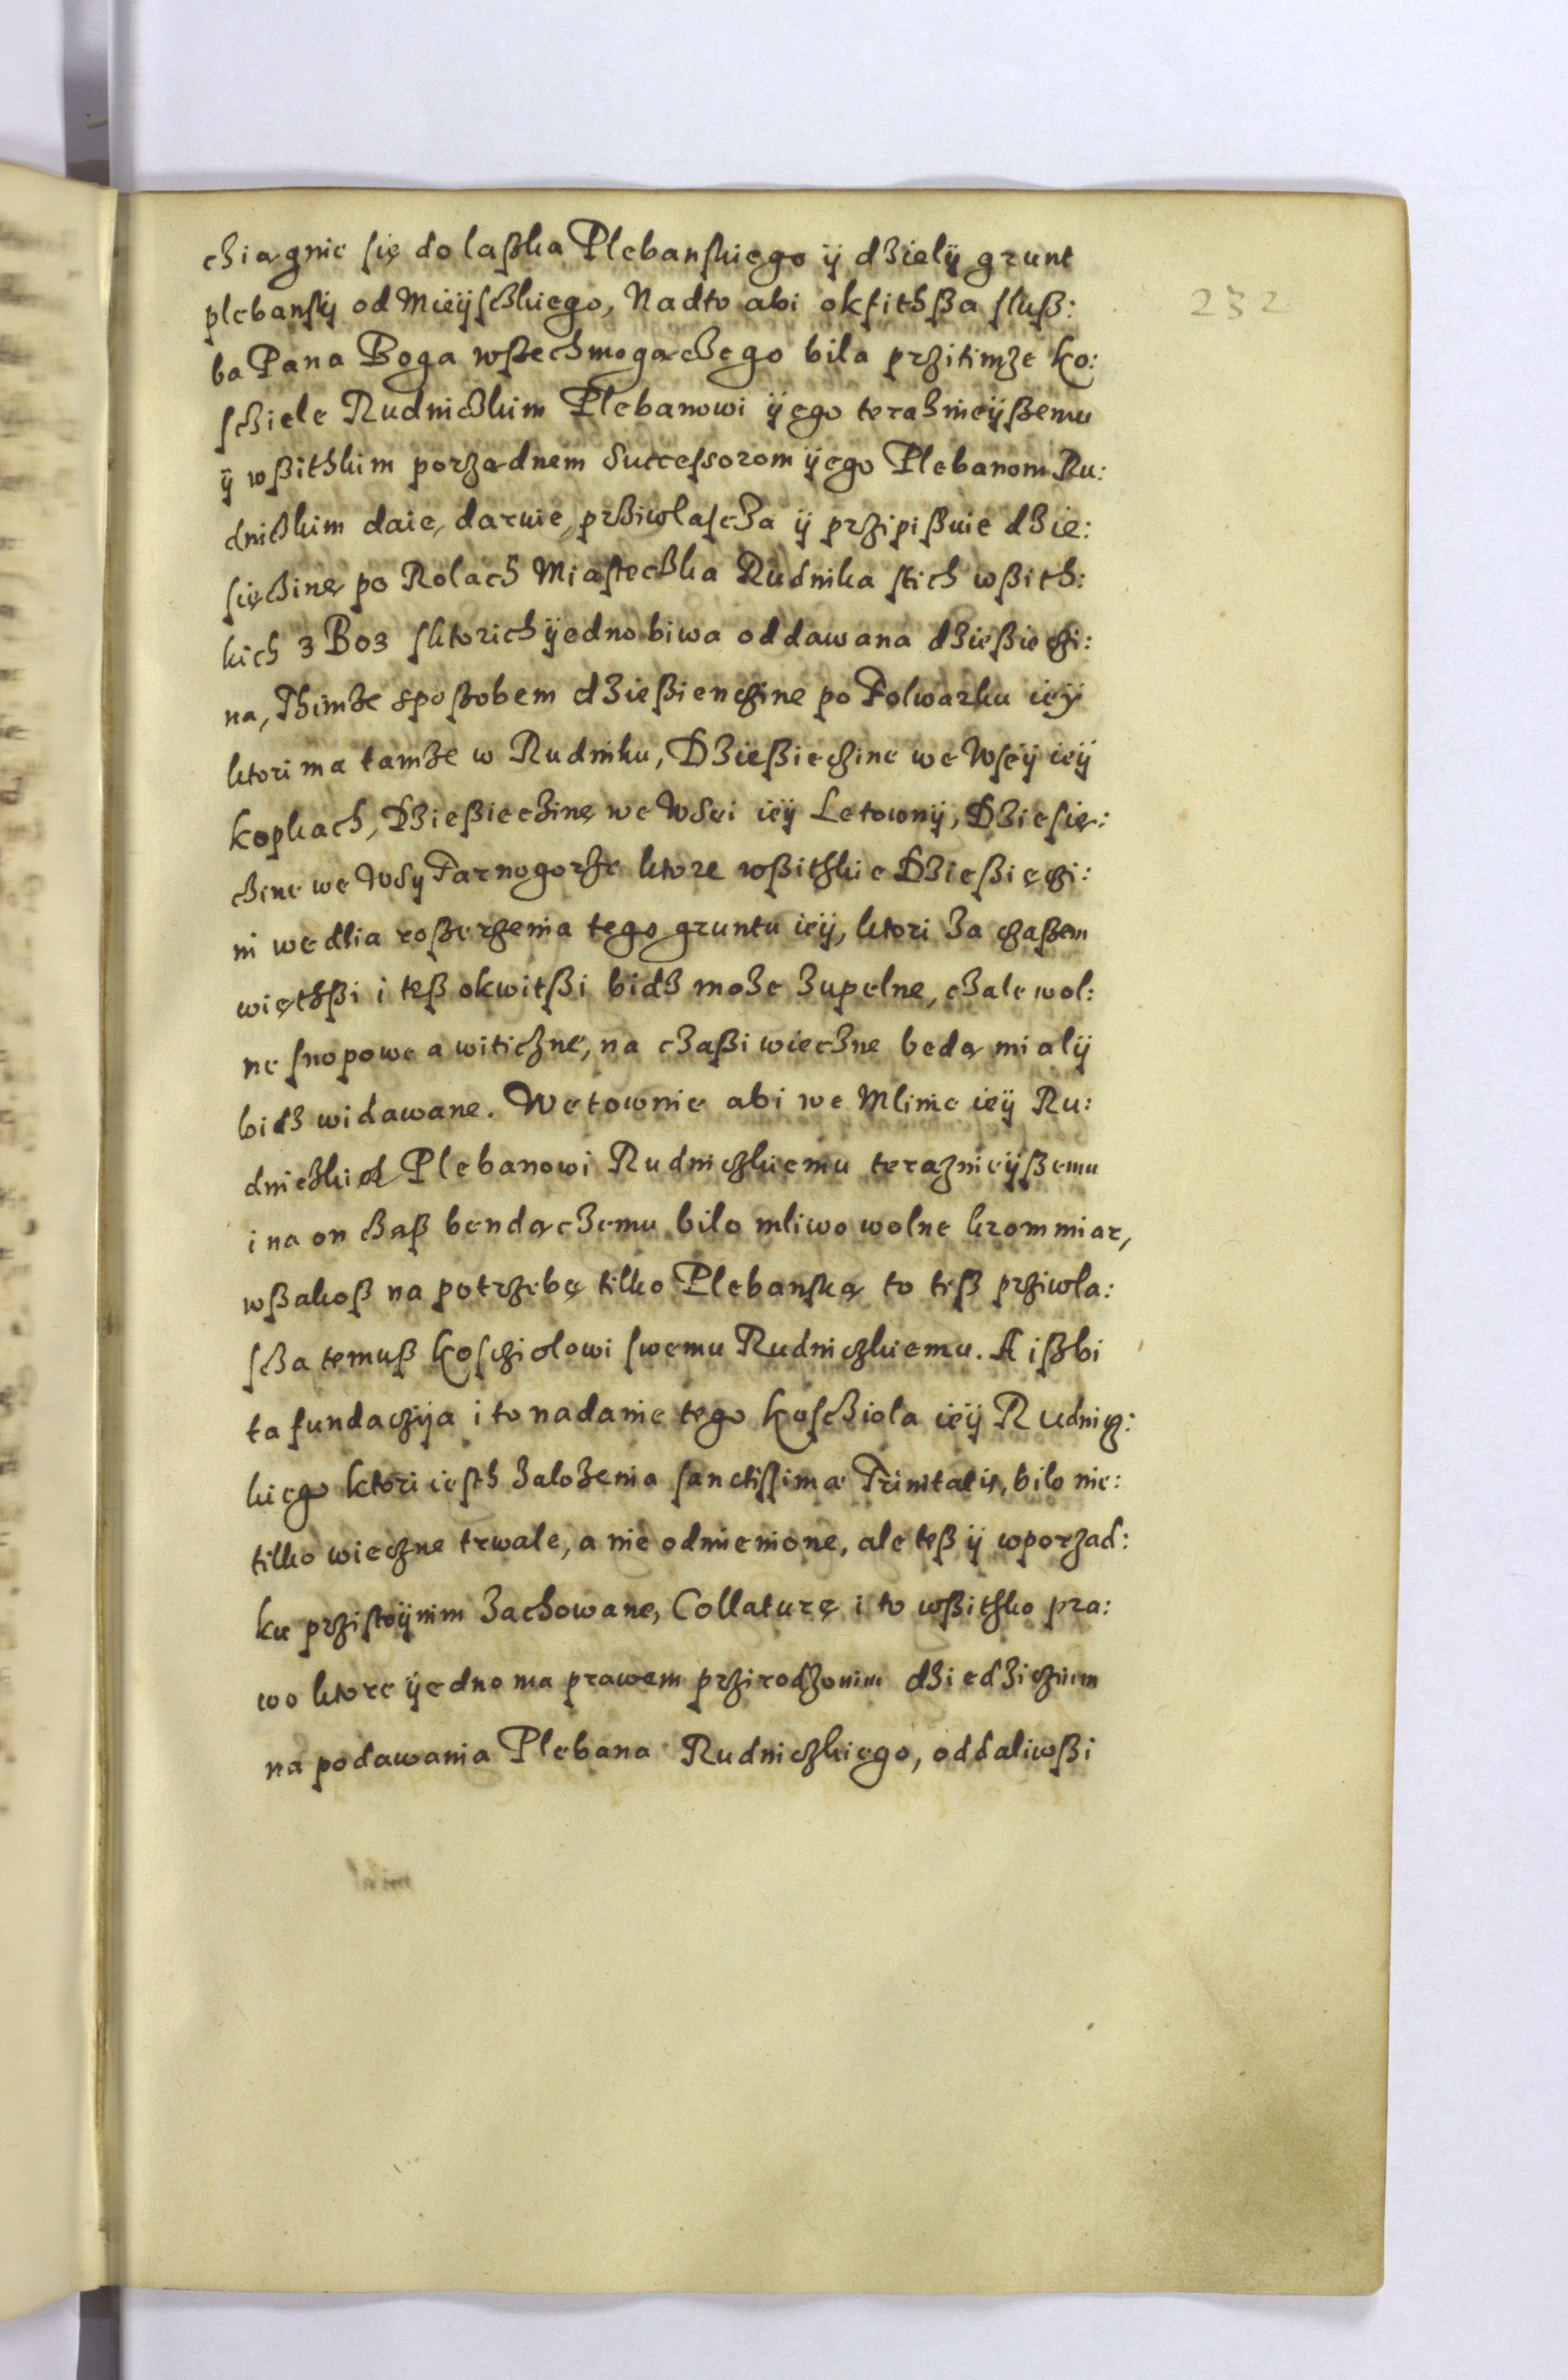 cziągnie się do laßka Plebanskiego ÿ dzielÿ grunt
plebanskÿ od Mieÿsczkiego, Nadto abi okfithßa służ:
ba Pana Boga wßechmogączego bila przitimze ko:
scziele Rudniczkim Plebanowi ÿego teraznieÿßemu
ÿ wßithkim porządnem Successorom ÿego Plebanom Ru:
dniczkim daie, daruie, prziwlascza ÿ przipißuie dzie:
sięczinę po Rolach Miasteczka Rudnika stich wßith:
kich z Boz sktorich ÿedno biwa oddawana dzießięczi:
na, Thimze sposzobem dzießienczine po Folwarku ieÿ
ktori ma tamze w Rudniku, Dzießieczine we Wseÿ ieÿ
Kopkach, Dzießieczinę we Wsei ieÿ Letownÿ, Dziesię:
czine we Wsy Tarnogorze ktore wßithkie Dzießięczi:
ni wedlia roßerzenia tego gruntu ieÿ, ktori za czaßem
większßi i teß okwitßi bidz moze zupelne, czale wol:
ne snopowe a witiczne, na czaßi wieczne bedą mialÿ
bidz widawane. Wetownie abi we Mlinie ieÿ Ru:
dniczkich Plebanowi Rudniczkiemu teraznieÿßemu
i na on czaß bendączemu bilo mliwo wolne krom miar,
wßakoß na potrzebę tilko Plebanską to tiß prziwla:
scza temuß koscziolowi swemu Rudniczkiemu. A ißbi
ta fundaczÿa i to nadanie tego kosciola ieÿ Rudnicz:
kiego ktori iesth zalozenia sanctissimæ Trinitatis, bilo nie:
tilko wieczne trwale, a nie odmienione, ale teß ÿ wporząd:
ku przistoÿnim zachowane, Collaturę i to wßithko pra:
wo ktore ÿedno ma prawem przirodzonim dziedzicznim
na podawania Plebana Rudniczkiego, oddaliwßi
232